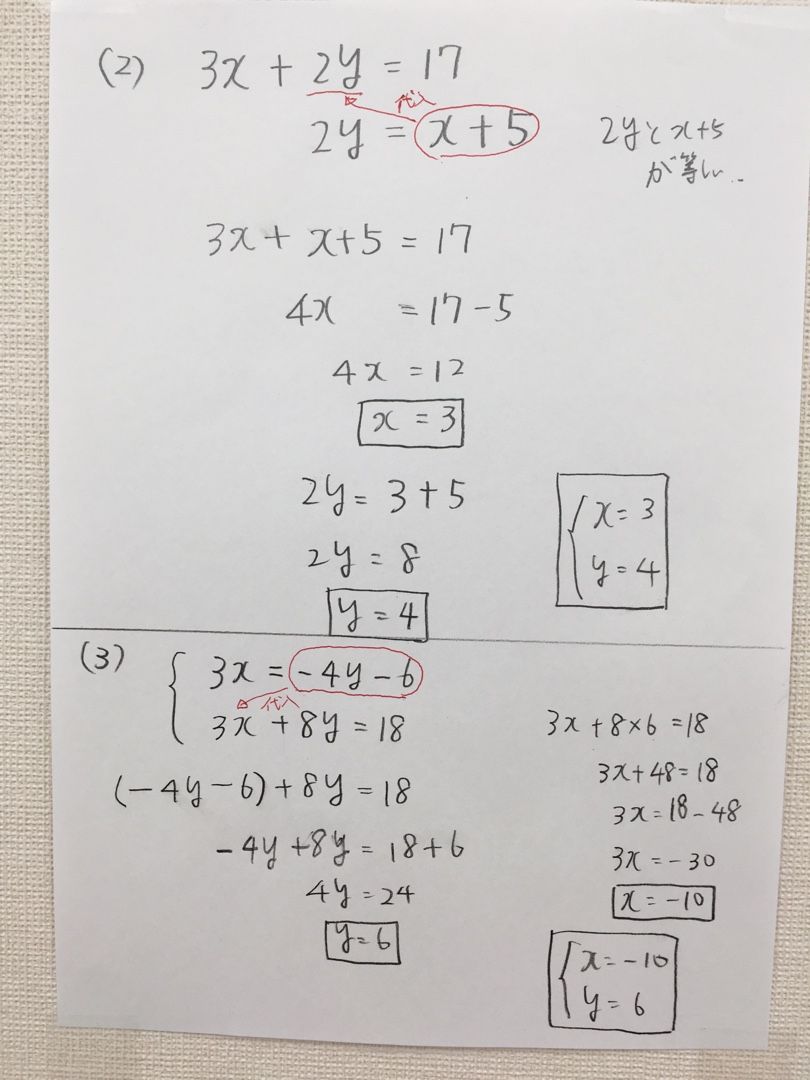 (2) 3x + 2y = 17
代入
2y = x + 5
2yとx+5
が等しい..
3x + x+5 = 17
4x = 17 - 5
4x = 12
x = 3
2y = 3 + 5
2y = 8
y = 4
{ x = 3
y = 4
(3) { 3x = -4y - 6
代入
3x + 8y = 18
(-4y - 6) + 8y = 18
-4y + 8y = 18 + 6
4y = 24
y = 6
3x + 8×6 = 18
3x + 48 = 18
3x = 18 - 48
3x = -30
x = -10
{ x = -10
y = 6